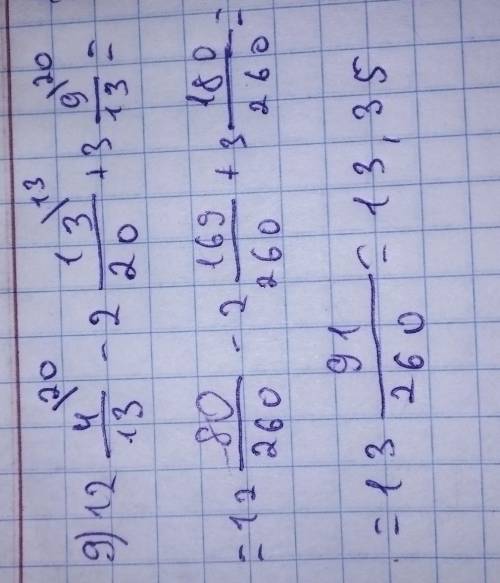 9) 12 4/13 \20 - 2 13/20 \13 + 3 9/13 \20 =
= 12 80/260 - 2 169/260 + 3 180/260 =
= 13 91/260 = 13,35